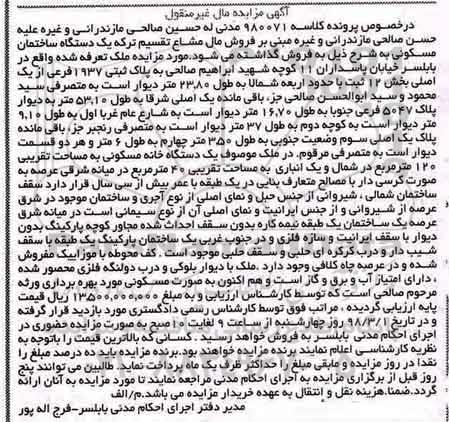 آگهی مزایده مال غیرمنقول
درخصوص پرونده کلاسه ۹۸۰۰۷۱ مدنی له حسین صالحی مازندرانی و غیره علیه
حسن صالحی مازندرانی و غیره مبنی بر فروش مال مشاع تقسیم ترکه یک دستگاه ساختمان
مسکونی به شرح ذیل به فروش گذاشته می شود.مورد مزایده ملک تعرفه شده واقع در
بابلسر خیابان پاسداران ۱۱ کوچه شهید ابراهیم صالحی به پلاک ثبتی ۱۹۳۷ فرعی از یک
اصلی بخش ۱۲ با حدود اربعه شمالا به طول ۲۳,۸۰ متر دیوار است به متصرفی سید
محمود و سید ابوالحسن صالحی جز، باقی مانده یک اصلی شرقا به طول ۵۳,۱۰ متر به دیوار
پلاک ۵۰۴۷ فرعی جنوبا به طول ۱۶,۷۰ متر دیوار است به شارع عام غربا اول به طول ۹,۱۰
متر دیوار است به کوچه دوم به طول ۳۷ متر دیوار است به متصرفی رنجبر جز، باقی مانده
پلاک یک اصلی سوم وضعیت جنوبی به طول ۳۵۰ متر چهارم به طول ۶ متر و هر دو قسمت
دیوار است به متصرفی مرقوم. در ملک موصوف یک دستگاه خانه مسکونی به مساحت تقریبی
۱۲۰ مترمربع در شمال و یک انباری به مساحت تقریبی ۴۰ مترمربع در میانه شرقی عرصه به
صورت کرسی دار با مصالح متعارف بنایی در یک طبقه با عمر بیش از سی سال قرار دارد سقف
ساختمان شمالی ، شیروانی از جنس حبل و نمای اصلی از نوع آجری و ساختمان موجود در شرق
عرصه از شیروانی و از جنس ایرانیت و نمای اصلی آن از نوع سیمانی است در میانه شرق
عرصه یک ساختمان یک طبقه نیمه کاره بدون سقف احداث شده مجاور کوچه پارکینگ بدون
دیوار با سقف ایرانیت و سازه فلزی و در جنوب غربی یک ساختمان پارکینگ یک طبقه با سقف
شیب دار و درب کرکره ای حلبی و سقف حلبی موجود است . کف محوطه با موزاییک مفروش
شده و در عرصه چاه کلافی وجود دارد .ملک با دیوار بلوکی و درب دولنگه فلزی محصور شده
، دارای امتیاز آب و برق و گاز است و هم اکنون به صورت مسکونی مورد بهره برداری ورثه
مرحوم صالحی است که توسط کارشناس ارزیابی و به مبلغ ۱۳۵۰۰,۰۰۰,۰۰۰ ریال قیمت
پایه ارزیابی گردیده ، مراتب فوق توسط کارشناس رسمی دادگستری مورد بازدید قرار گرفته
و در تاریخ ۹۸/۳/۱ روز چهارشنبه از ساعت ۹ لغایت ۱۰ صبح به صورت مزایده حضوری در
اجرای احکام مدنی بابلسر به فروش خواهد رسید . کسانی که بالاترین قیمت را باتوجه به
نظریه کارشناسی اعلام نمایند برنده مزایده خواهند بود.برنده مزایده باید ده درصد مبلغ را
نقدا در روز مزایده و مابقی مبلغ را حداکثر ظرف یک ماه پرداخت نماید. طالبین می توانند پنج
روز قبل از برگزاری مزایده به اجرای احکام مدنی مراجعه نمایند تا مورد مزایده به آنان ارائه
گردد.ضمنا.هزینه نقل و انتقال به عهده خریدار مزایده می باشد.م/الف
مدیر دفتر اجرای احکام مدنی بابلسر-فرج اله پور